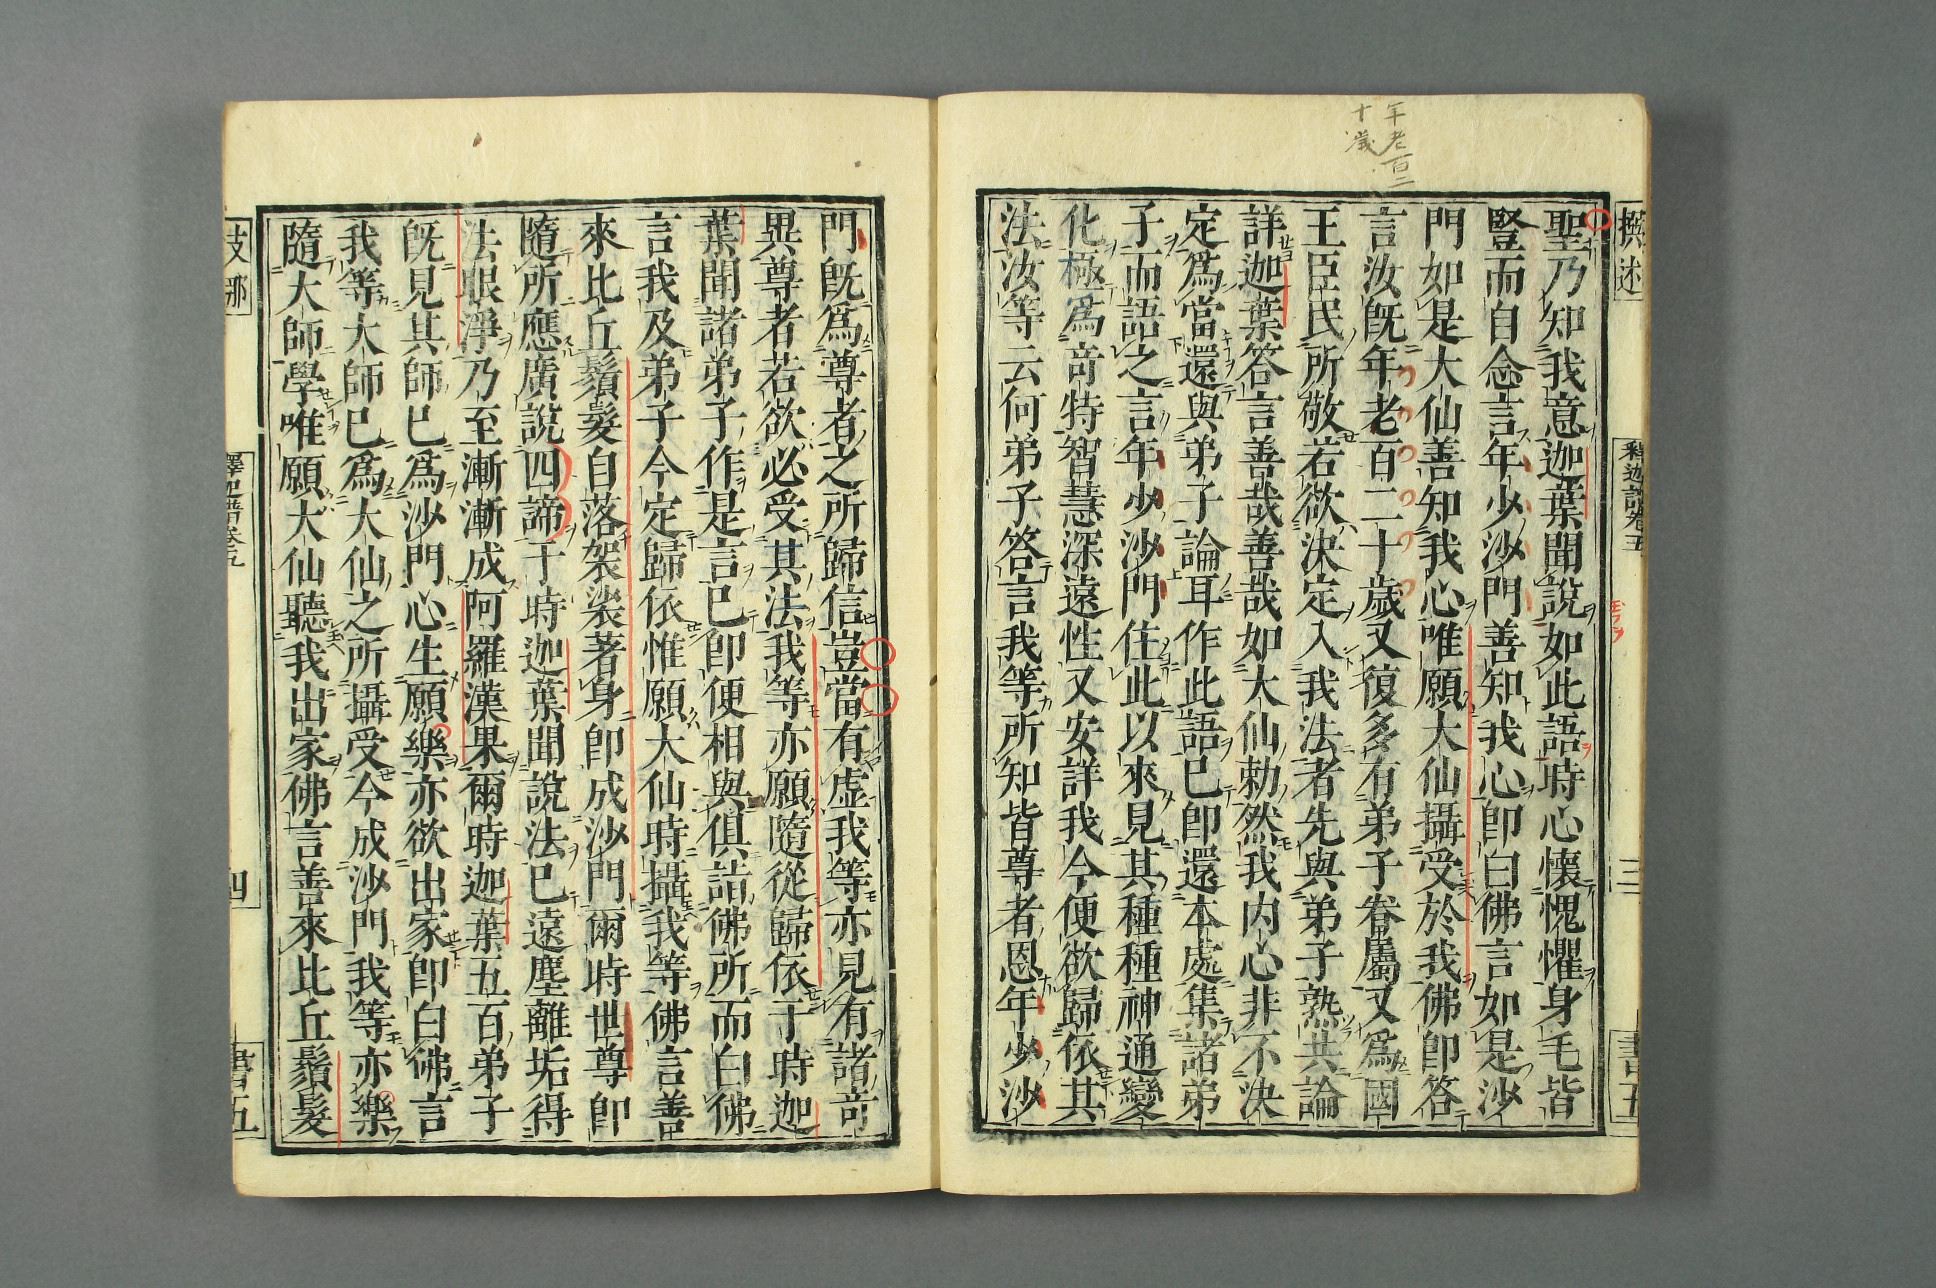 年老百二
十歲
撰述
釋迦譜卷五
三
書五
聖乃知我意迦葉聞說如此語時心懷愧懼身毛皆
豎而自念言年少沙門善知我心卽白佛言如是沙
門如是大仙善知我心唯願大仙攝受於我佛卽答
言汝旣年老百二十歲又復多有弟子眷屬又爲國
王臣民所敬若欲決定入我法者先與弟子熟共論
詳迦葉答言善哉善哉如大仙勅然我內心非不決
定爲當還與弟子論耳作此語已卽還本處集諸弟
子而語之言年少沙門住此以來見其種種神通變
化極爲竒特智慧深遠性又安詳我今便欲歸依其
法汝等云何弟子答言我等所知皆尊者恩年少沙
門旣爲尊者之所歸信豈當有虛我等亦見有諸竒
異尊者若欲必受其法我等亦願隨從歸依于時迦
葉聞諸弟子作是言已卽便相與俱詣佛所而白佛
言我及弟子今定歸依惟願大仙時攝我等佛言善
來比丘鬚髮自落袈裟著身卽成沙門爾時世尊卽
隨所應廣說四諦于時迦葉聞說法已遠塵離垢得
法眼淨乃至漸漸成阿羅漢果爾時迦葉五百弟子
旣見其師已爲沙門心生願樂亦欲出家卽白佛言
我等大師已爲大仙之所攝受今成沙門我等亦樂
隨大師學唯願大仙聽我出家佛言善來比丘鬚髮
支那
釋迦譜卷五
四
書五